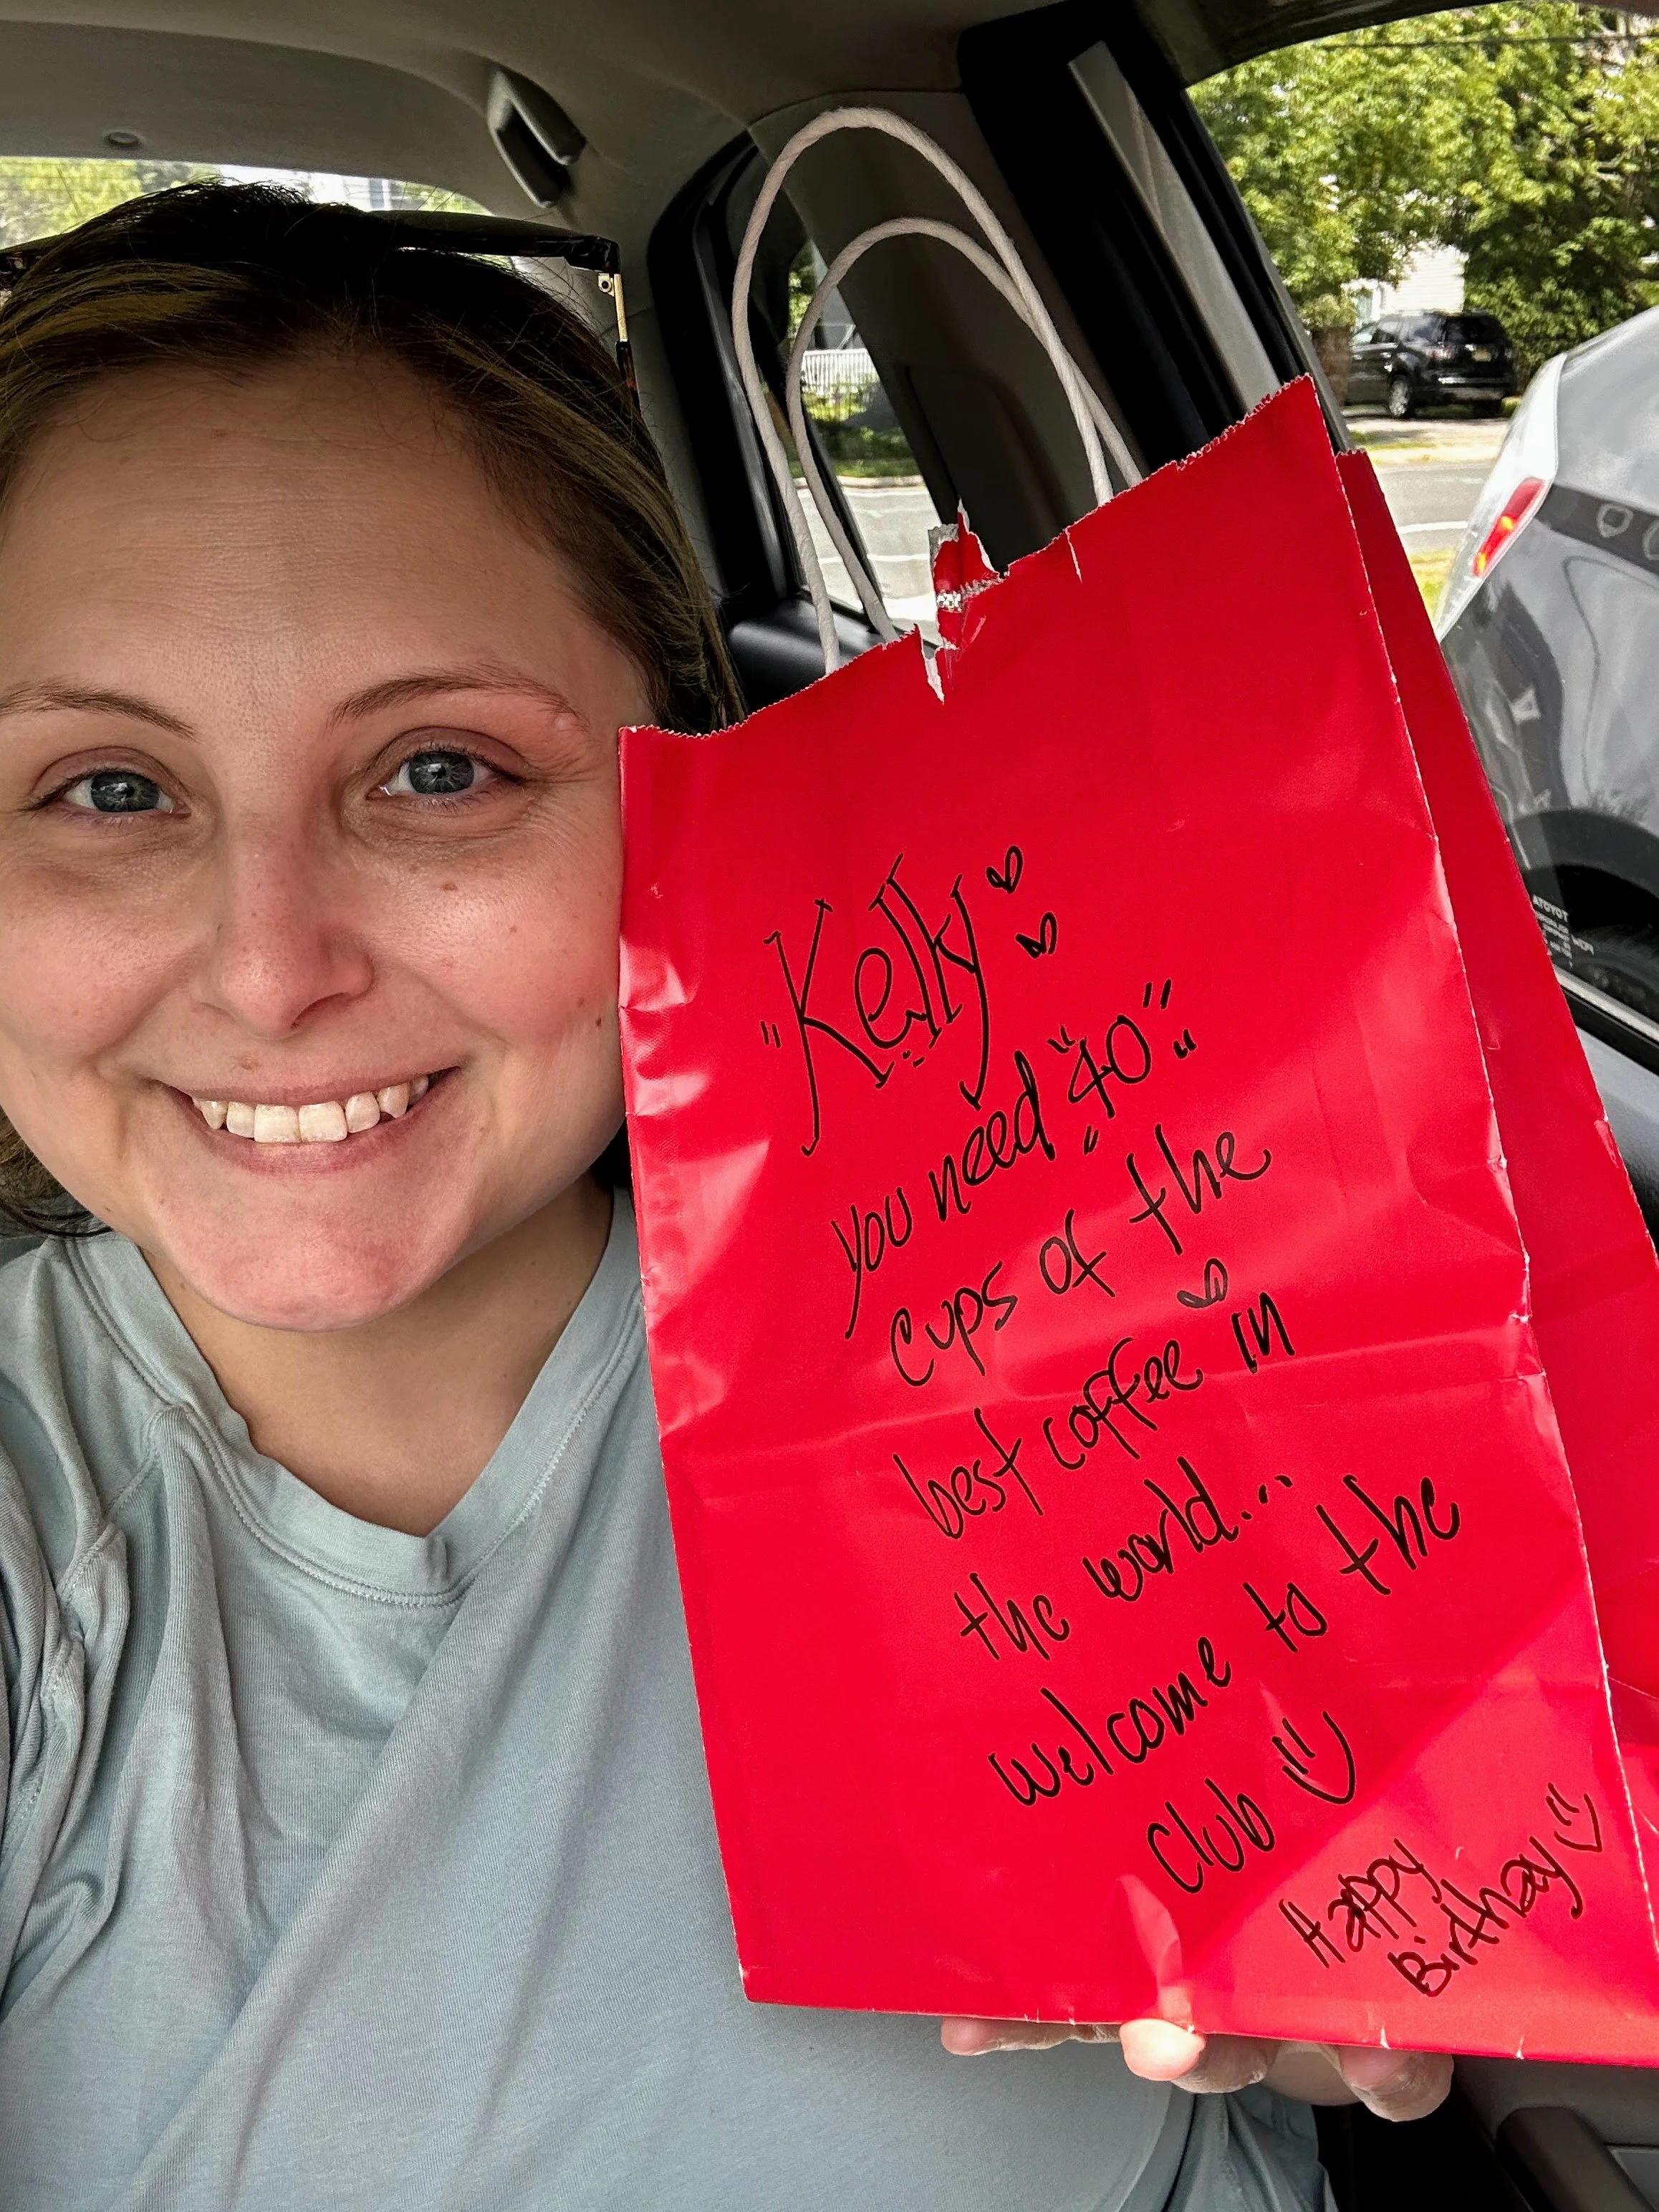 "Kelly"
you need "40"
cups of the
best coffee in
the world...
welcome to the
Club
Happy
Birthday
TOYOTA